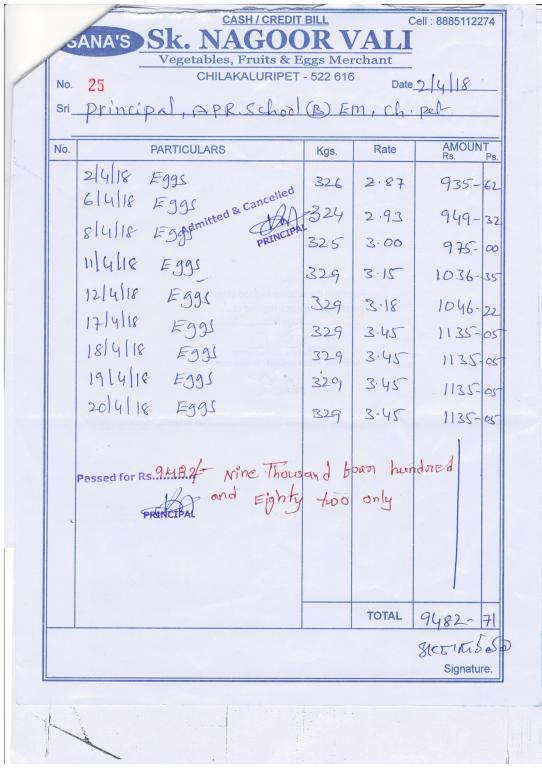 CASH / CREDIT BILL
Cell : 8885112274
SANA'S Sk. NAGOOR VALI
Vegetables, Fruits & Eggs Merchant
CHILAKALURIPET - 522 616
No. 25 Date 2/4/18
Sri Principal, APR. School (B) Em, Ch. pet
No. PARTICULARS Kgs. Rate AMOUNT
Rs. Ps.
2/4/18 Eggs 326 2.87 935-62
6/4/18 Eggs 324 2.93 949-32
Admitted & Cancelled
PRINCIPAL
8/4/18 Eggs 325 3.00 975-00
11/4/18 Eggs 329 3.15 1036-35
12/4/18 Eggs 329 3.18 1046-22
17/4/18 Eggs 329 3.45 1135-05
18/4/18 Eggs 329 3.45 1135-05
19/4/18 Eggs 329 3.45 1135-05
20/4/18 Eggs 329 3.45 1135-05
Passed for Rs. 9482/- Nine Thousand four hundred
and Eighty two only
PRINCIPAL
TOTAL 9482-71
Signature.